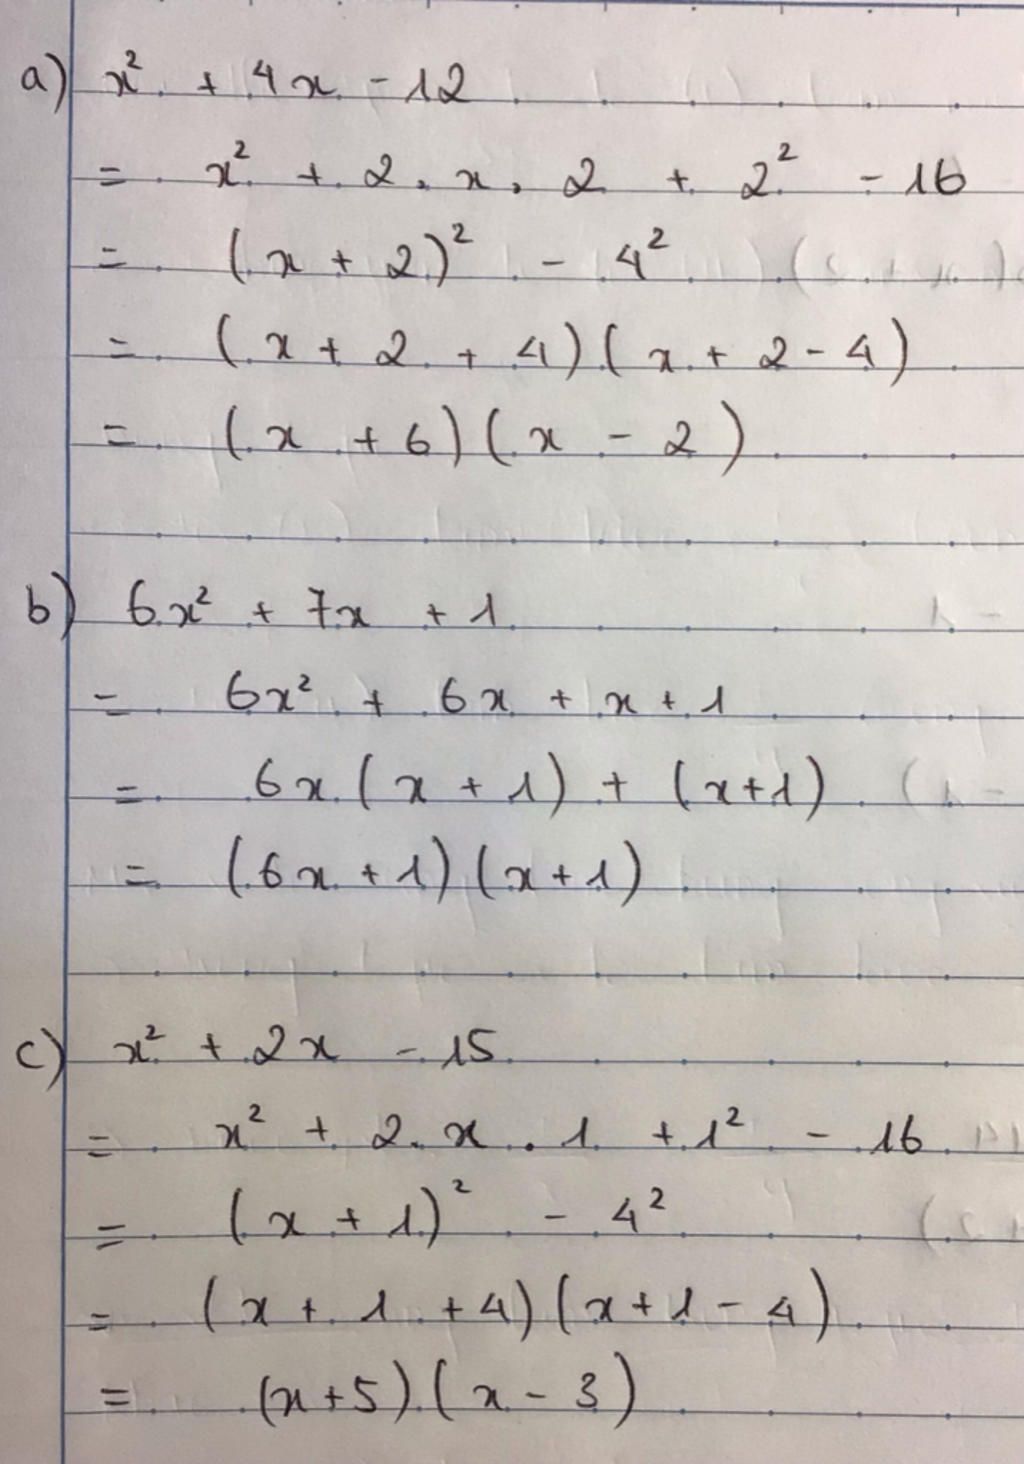 a) x² + 4x - 12
= x² + 2 . x . 2 + 2² - 16
= (x + 2)² - 4²
= (x + 2 + 4)(x + 2 - 4)
= (x + 6)(x - 2)
b) 6x² + 7x + 1
= 6x² + 6x + x + 1
= 6x(x + 1) + (x+1)
= (6x + 1)(x + 1)
c) x² + 2x - 15
= x² + 2 . x . 1 + 1² - 16
= (x + 1)² - 4²
= (x + 1 + 4)(x + 1 - 4)
= (x+5)(x - 3)